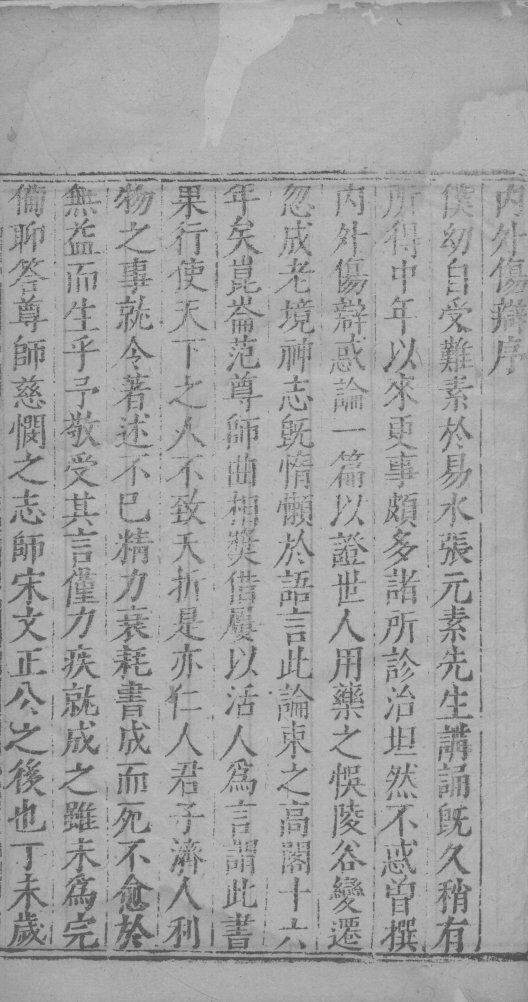 内外傷辯序
僕幼自受難素於易水張元素先生講誦旣久稍有
所得中年以來更事頗多諸所診治坦然不惑曽撰
内外傷辯惑論一篇以證世人用藥之悞陵谷變遷
忽成老境神志旣惰懶於語言此論束之高閣十六
年矣崑崙范尊師曲相奬借屢以活人爲言謂此書
果行使天下之人不致夭折是亦仁人君子濟人利
物之事就令著述不已精力衰耗書成而死不愈於
無益而生乎予敬受其言僅力疾就成之雖未爲完
備聊答尊師慈憫之志師宋文正公之後也丁未歲